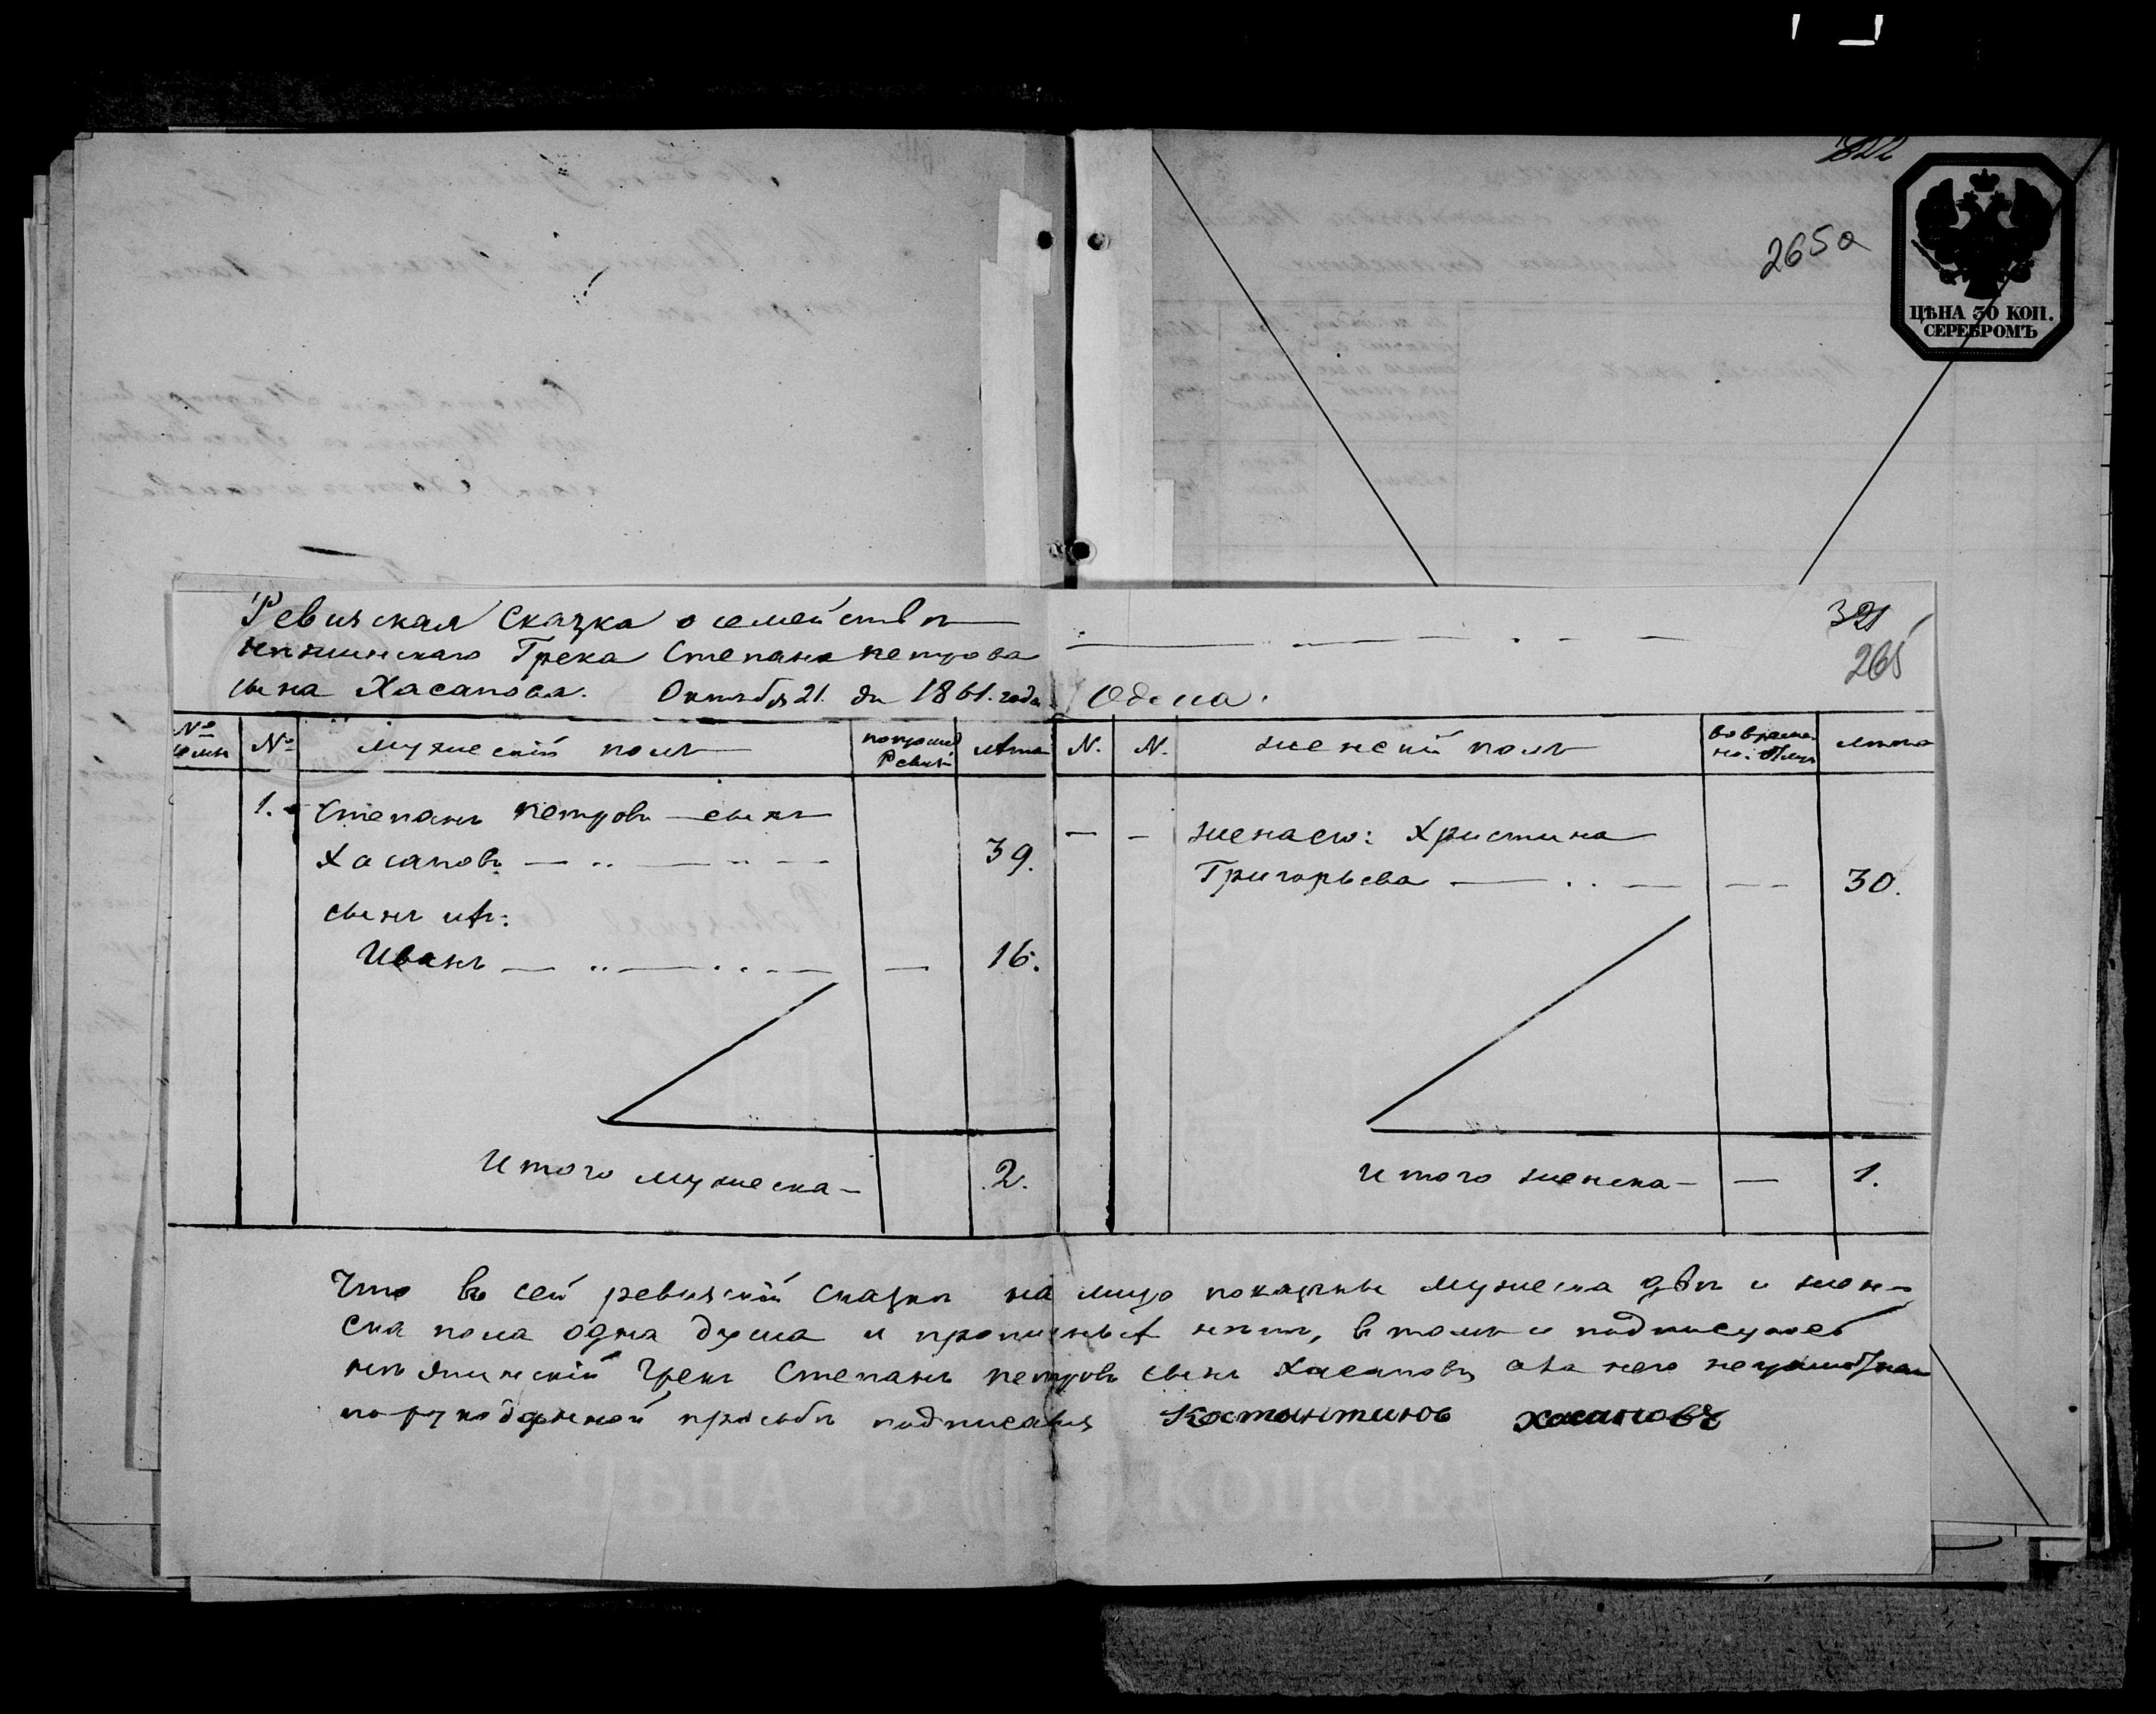 322
265а
ЦѢНА 30 КОП.
СЕРЕБРОМЪ
Ревизская Сказка о семействѣ
нѣжинскаго Грека Степана петрова
сына Хасапова. Октября 21. дн 1861. года Одесса.
321
265
№ № мужескій полъ лѣта N. N. женскій полъ лѣта
1. Степанъ петровъ сынъ
Хасаповъ 39.
жена его: Христина
Григорьева 30.
сынъ ихъ:
Иванъ 16.
Итого мужеска 2.
Итого женска 1.
Что въ сей ревизской сказки на лицо показаны мужеска двѣ и жен-
ска пола одна душа и прописныхъ нѣтъ, в томъ и подписуюсь
нѣжинскій Грекъ Степанъ петровъ сынъ Хасаповъ а за него
по рукоданной прозьбѣ подписался Костантинъ хасаповъ